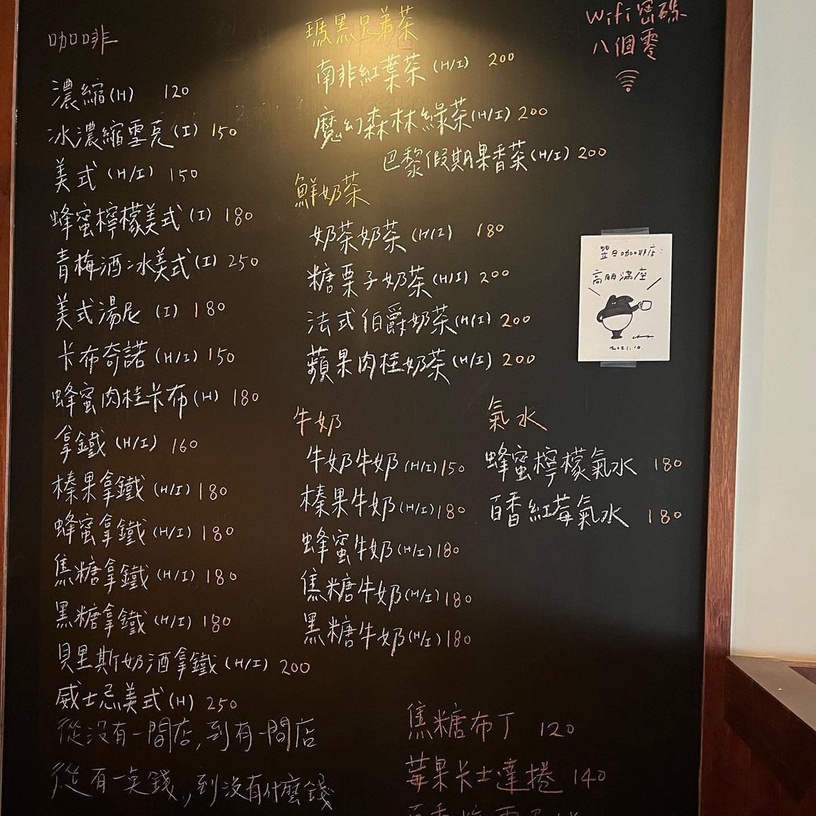 咖啡
濃縮(H) 120
冰濃縮雪克(I) 150
美式(H/I) 150
蜂蜜檸檬美式(I) 180
青梅酒冰美式(I) 250
美式湯尼(I) 180
卡布奇諾(H/I) 150
蜂蜜肉桂卡布(H) 180
拿鐵(H/I) 160
榛果拿鐵(H/I) 180
蜂蜜拿鐵(H/I) 180
焦糖拿鐵(H/I) 180
黑糖拿鐵(H/I) 180
貝里斯奶酒拿鐵(H/I) 200
威士忌美式(H) 250
從沒有一間店,到有一間店
從有一點錢,到沒有什麼錢
瑪黑兄弟茶
南非紅葉茶(H/I) 200
魔幻森林綠茶(H/I) 200
巴黎假期果香茶(H/I) 200
鮮奶茶
奶茶奶茶(H/I) 180
糖栗子奶茶(H/I) 200
法式伯爵奶茶(H/I) 200
蘋果肉桂奶茶(H/I) 200
牛奶
牛奶牛奶(H/I) 150
榛果牛奶(H/I) 180
蜂蜜牛奶(H/I) 180
焦糖牛奶(H/I) 180
黑糖牛奶(H/I) 180
氣水
蜂蜜檸檬氣水 180
百香紅莓氣水 180
焦糖布丁 120
莓果卡士達捲 140
Wifi密碼
八個零
翌日咖啡店:
高朋滿座
2021.10.